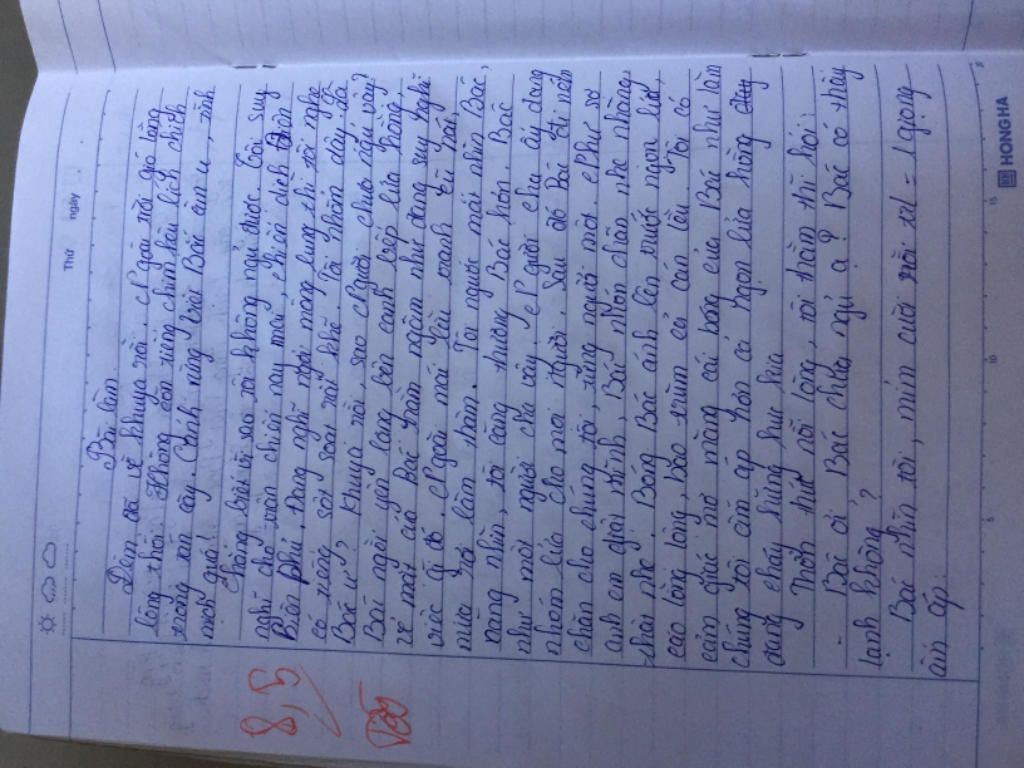 Thứ ngày
Bài làm
Đêm đã về khuya rồi. Ngoài trời gió lồng
lộng thổi. Không còn tiếng chim kêu lích chích
trong tán cây. Cảnh rừng Việt Bắc âm u, tĩnh
mịch quá!
Chẳng biết vì sao tôi không ngủ được. Tôi suy
nghĩ cho trận chiến ngày mai, chiến dịch
Biên Phủ. Đang nghĩ ngợi mông lung thì tôi nghe
có tiếng sột soạt rất khẽ. Tôi nhổm dậy. Là
Bác ư, khuya rồi, sao Người chưa ngủ vậy?
Bác ngồi yên lặng bên cạnh bếp lửa hồng,
vẻ mặt của Bác trầm ngâm như đang suy nghĩ
việc gì đó. Ngoài mái lều tranh cũ nát,
mưa rơi lâm thâm. Tôi ngước mái nhìn Bác,
càng nhìn, tôi càng thương Bác hơn. Bác
như một người cha vậy. Người cha ấy đang
nhóm lửa cho mọi người. Sau đó Bác đi dém
chăn cho chúng tôi, từng người một. Như sợ
anh em giật mình, Bác nhón chân nhẹ nhàng
thật nhẹ. Bóng Bác ánh lên trước ngọn lửa,
cao lồng lộng, bao trùm cả căn lều. Tôi có
cảm giác mơ màng cái bóng của Bác như làm
chúng tôi ấm áp hơn cả ngọn lửa hồng
đang cháy hừng hực kia.
Thổn thức nỗi lòng, tôi thầm thì hỏi:
- Bác ơi Bác chưa ngủ ạ? Bác có thấy
lạnh không?
Bác nhìn tôi, mỉm cười rồi trl = 1 giọng
ấm áp:
8,5
HONG HA